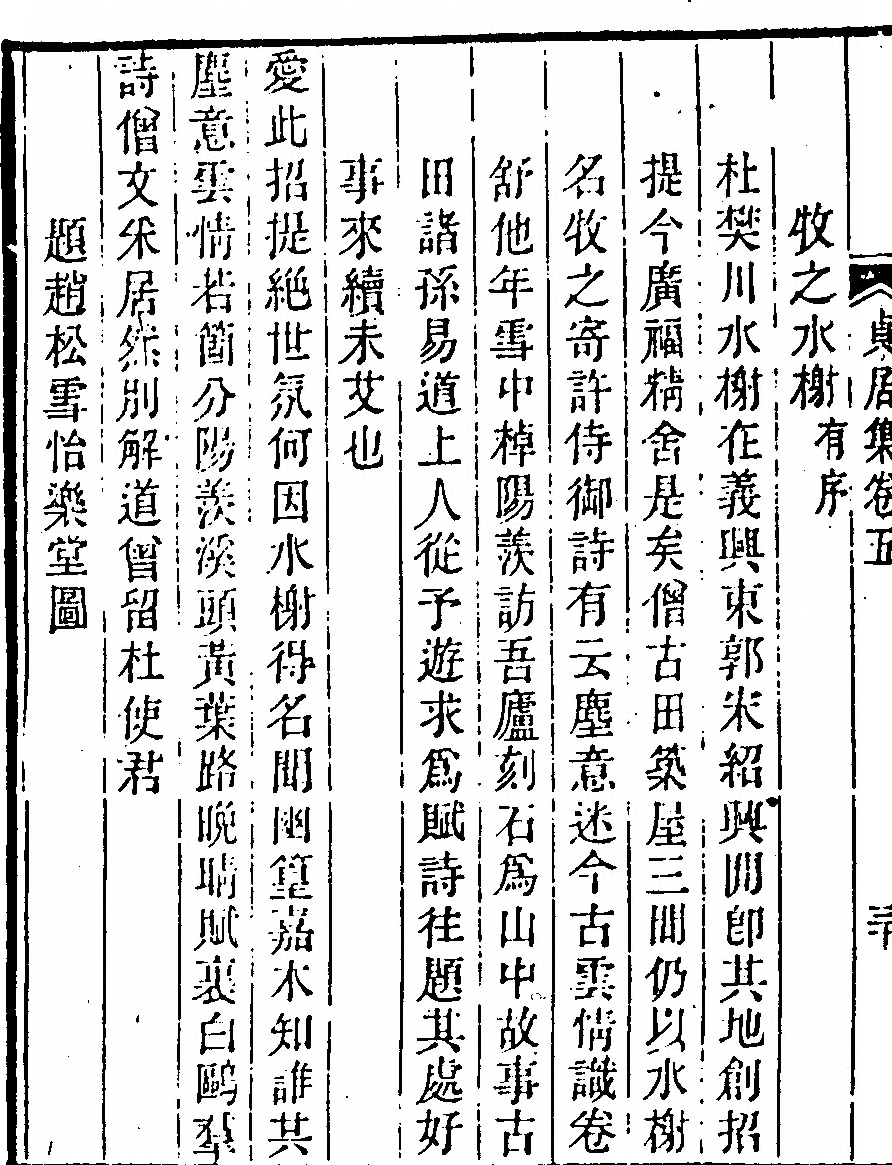 貞居集卷五
牧之水榭有序
杜樊川水榭在義興東郭宋紹興間卽其地創招
提今廣福精舍是矣僧古田築屋三間仍以水榭
名牧之寄許侍御詩有云塵意迷今古雲情識卷
舒他年雪中棹陽羨訪吾廬刻石爲山中故事古
田諸孫易道上人從予遊求爲賦詩往題其處好
事來續未艾也
愛此招提絶世氛何因水榭得名聞幽篁嘉木知誰共
塵意雲情若箇分陽羨溪頭黃葉路晚晴賦裏白鷗羣
詩僧文采居然別解道曾留杜使君
題趙松雪怡樂堂圖